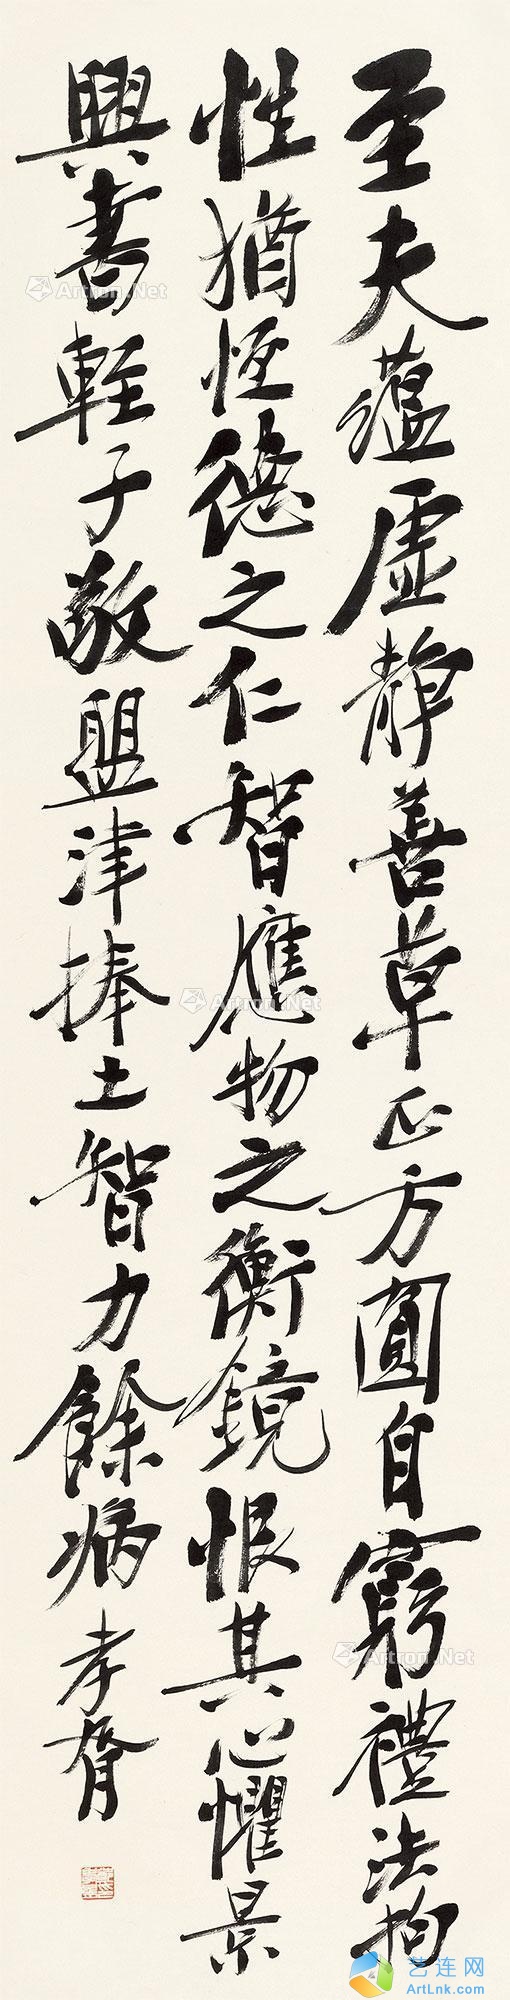 至夫蘊虛靜善草正方圓自窮禮法拘
性猶恆德之仁智應物之衡鏡恨其心懼景
興書輕子敬盟津捧土智力餘病 孝胥
Artron.Net
Artron.Net
Artron.Net
Artron.Net
艺连网
ArtLnk.com